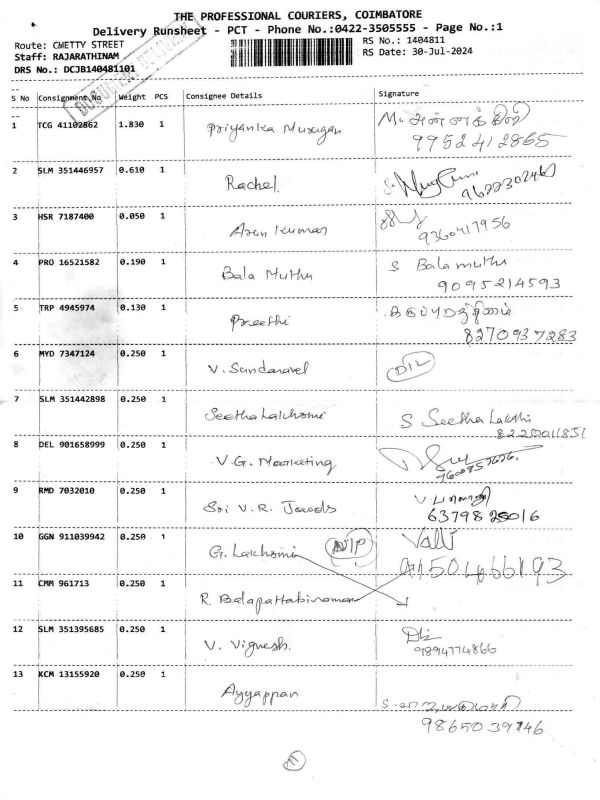 THE PROFESSIONAL COURIERS, COIMBATORE
Delivery Runsheet - PCT - Phone No.:0422-3505555 - Page No.:1
Route: CWETTY STREET
RS No.: 1404811
Staff: RAJARATHINAM
RS Date: 30-Jul-2024
DRS No.: DCJB140481101
S No Consignment No Weight PCS Consignee Details Signature
1 TCG 41102862 1.830 1 Priyanka Murugan
9952412865
2 SLM 351446957 0.610 1 Rachel
3 HSR 7187400 0.050 1 Aren Kumar
9360417956
4 PRO 16521582 0.190 1 Bala Muthu S Bala muthu
9095214593
5 TRP 4945974 0.130 1 Preethi
8270937283
6 MYD 7347124 0.250 1 V. Sundaravel D/L
7 SLM 351442898 0.250 1 Seetha Lakhsmi S Seetha Lakshi
8 DEL 901658999 0.250 1 V.G. Marketing
9 RMD 7032010 0.250 1 Sri V.R. Jewels
10 GGN 911039942 0.250 1 G. Lakhsmi Valli
11 CMM 961713 0.250 1 R. Balapattabiraman
12 SLM 351395685 0.250 1 V. Vignesh.
9894774866
13 KCM 13155920 0.250 1 Ayyappan